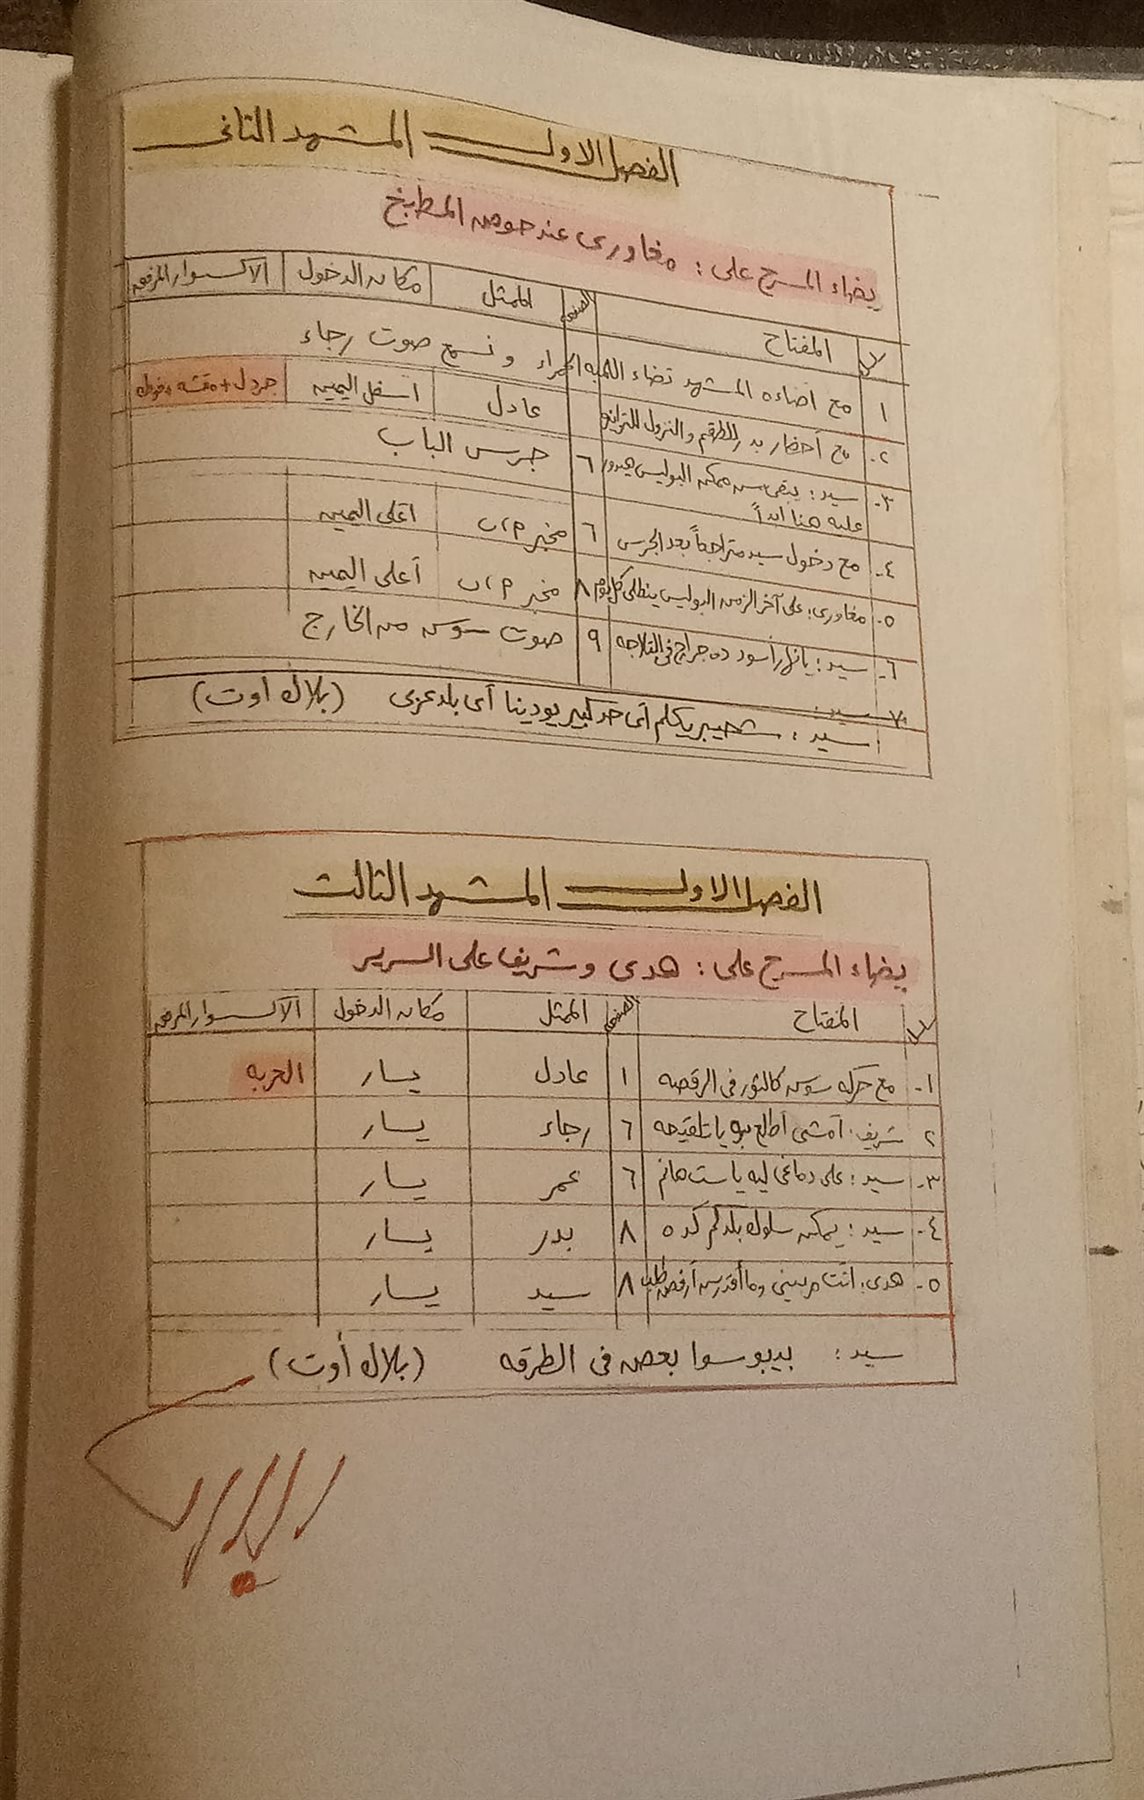 الفصل الاول المشهد الثانى
يضاء المسرح على : مغاورى عند حوض المطبخ
م المفتاح الصفحة الممثل مكان الدخول الاكسسوار المرفق
١ مع اضاءه المشهد تضاء اللمبه الحمراء ونسمع صوت رجاء
٢- مع أحضار بدر للطقم والنزول للترابيزه عادل اسفل اليمين جردل + مقشه وفوطه
٣- سيد : يبقى مش ممكن البوليس هيدور ٦ جرس الباب
عليه هنا ابداً
٤- مع دخول سيد متراجعاً بعد الجرس ٦ مخبر م ، ب اعلى اليمين
٥- مغاورى : على آخر الزمن البوليس ينطلى كل يوم ٨ مخبر م ، ب أعلى اليمين
٦- سيد : يا نهار أسود ده جراج فى التلاجه ٩ صوت سوسن من الخارج
٧- سيد :
سيد : شحيبر يكلم أى حد كبير يودينا أى بلد عربى (بلاك اوت)
الفصل الاول المشهد الثالث
يضاء المسرح على : هدى وشريف على السرير
م المفتاح الصفحة الممثل مكان الدخول الاكسسوار المرفق
١- مع حركه سوسن كالثور فى الرقصه ١ عادل يسار العربه
٢ شريف : امشى اطلع بره يا تلقيحه ٦ رجاء يسار
٣- سيد : على دماغى ليه يا ست هانم ٦ عمر يسار
٤- سيد : يمكن سلوك بلدكم كده ٨ بدر يسار
٥- هدى : انت مربينى وما أقدرش أرفض طلب ٨ سيد يسار
سيد : بيبوسوا بعض فى الطرقه (بلاك أوت)